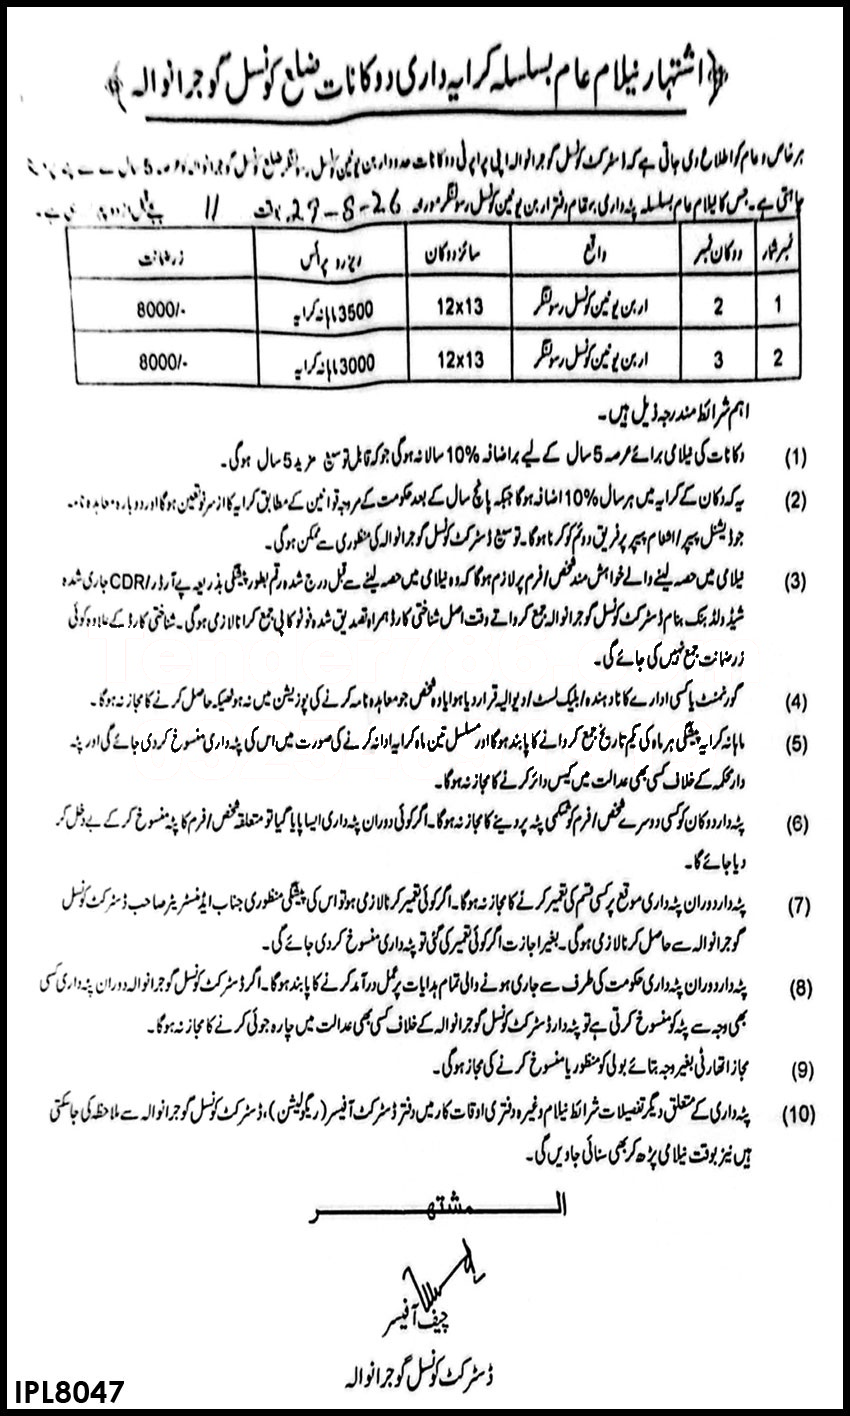 ﴿اشتہار نیلام عام بسلسلہ کرایہ داری دوکانات ضلع کونسل گوجرانوالہ﴾
ہر خاص و عام کو اطلاع دی جاتی ہے کہ ڈسٹرکٹ کونسل گوجرانوالہ اپنی پراپرٹی دوکانات حدود اربن یونین کونسل رسولنگر ضلع کونسل گوجرانوالہ کو عرصہ 5 سال
چاہتی ہے۔ جس کا نیلام عام بسلسلہ پٹہ داری بمقام دفتر اربن یونین کونسل رسولنگر مورخہ 26-8-29 بوقت 11
نمبر شمار دوکان نمبر واقع سائز دوکان ریزرو پرائس زرضمانت
1 2 اربن یونین کونسل رسولنگر 12x13 3500 ماہانہ کرایہ 8000/-
2 3 اربن یونین کونسل رسولنگر 12x13 3000 ماہانہ کرایہ 8000/-
اہم شرائط مندرجہ ذیل ہیں۔
(1) دکانات کی نیلامی برائے عرصہ 5 سال کے لیے براضافہ 10% سالانہ ہوگی جو کہ قابل توسیع مزید 5 سال ہوگی۔
(2) یہ کہ دکان کے کرایہ میں ہر سال 10% اضافہ ہوگا جبکہ پانچ سال کے بعد حکومت کے مروجہ قوانین کے مطابق کرایہ کا از سر نو تعین ہوگا اور دوبارہ معاہدہ نامہ
جوڈیشنل پیپر/اشٹام پیپر پر فریق دوئم کو کرنا ہوگا۔ توسیع ڈسٹرکٹ کونسل گوجرانوالہ کی منظوری سے ممکن ہوگی۔
(3) نیلامی میں حصہ لینے والے خواہش مند شخص/فرم پر لازم ہوگا کہ وہ نیلامی میں حصہ لینے سے قبل درج شدہ رقم بطور پیشگی بذریعہ پے آرڈر/CDR جاری شدہ
شیڈولڈ بنک بنام ڈسٹرکٹ کونسل گوجرانوالہ جمع کرواتے وقت اصل شناختی کارڈ ہمراہ تصدیق شدہ فوٹو کاپی جمع کرانا لازمی ہوگی۔ شناختی کارڈ کے علاوہ کوئی
زرضمانت جمع نہیں کی جائے گی۔
(4) گورنمنٹ یا کسی ادارے کا نادہندہ/بلیک لسٹ/دیوالیہ قرار دیا ہوا یا وہ شخص جو معاہدہ نامہ کرنے کی پوزیشن میں نہ ہو ٹھیکہ حاصل کرنے کا مجاز نہ ہوگا۔
(5) ماہانہ کرایہ پیشگی ہر ماہ کی یکم تاریخ جمع کروانے کا پابند ہوگا اور مسلسل تین ماہ کرایہ ادا نہ کرنے کی صورت میں اس کی پٹہ داری منسوخ کر دی جائے گی اور پٹہ
دار محکمہ کے خلاف کسی بھی عدالت میں کیس دائر کرنے کا مجاز نہ ہوگا۔
(6) پٹہ دار دوکان کو کسی دوسرے شخص/فرم کو شکمی پٹہ پر دینے کا مجاز نہ ہوگا۔ اگر کوئی دوران پٹہ داری ایسا پایا گیا تو متعلقہ شخص/فرم کا پٹہ منسوخ کر کے بے دخل کر
دیا جائے گا۔
(7) پٹہ دار دوران پٹہ داری موقع پر کسی قسم کی تعمیر کرنے کا مجاز نہ ہوگا۔ اگر کوئی تعمیر کرنا لازمی ہو تو اس کی پیشگی منظوری جناب ایڈمنسٹریٹر صاحب ڈسٹرکٹ کونسل
گوجرانوالہ سے حاصل کرنا لازمی ہوگی۔ بغیر اجازت اگر کوئی تعمیر کی گئی تو پٹہ داری منسوخ کر دی جائے گی۔
(8) پٹہ دار دوران پٹہ داری حکومت کی طرف سے جاری ہونے والی تمام ہدایات پر عمل درآمد کرنے کا پابند ہوگا۔ اگر ڈسٹرکٹ کونسل گوجرانوالہ دوران پٹہ داری کسی
بھی وجہ سے پٹہ کو منسوخ کرتی ہے تو پٹہ دار ڈسٹرکٹ کونسل گوجرانوالہ کے خلاف کسی بھی عدالت میں چارہ جوئی کرنے کا مجاز نہ ہوگا۔
(9) مجاز اتھارٹی بغیر وجہ بتائے بولی کو منظور یا منسوخ کرنے کی مجاز ہوگی۔
(10) پٹہ داری کے متعلق دیگر تفصیلات شرائط نیلام وغیرہ دفتری اوقات کار میں دفتر ڈسٹرکٹ آفیسر (ریگولیشن)، ڈسٹرکٹ کونسل گوجرانوالہ سے ملاحظہ کی جاسکتی
ہیں نیز بوقت نیلامی پڑھ کر بھی سنائی جاویں گی۔
المشتہر
چیف آفیسر
ڈسٹرکٹ کونسل گوجرانوالہ
IPL8047